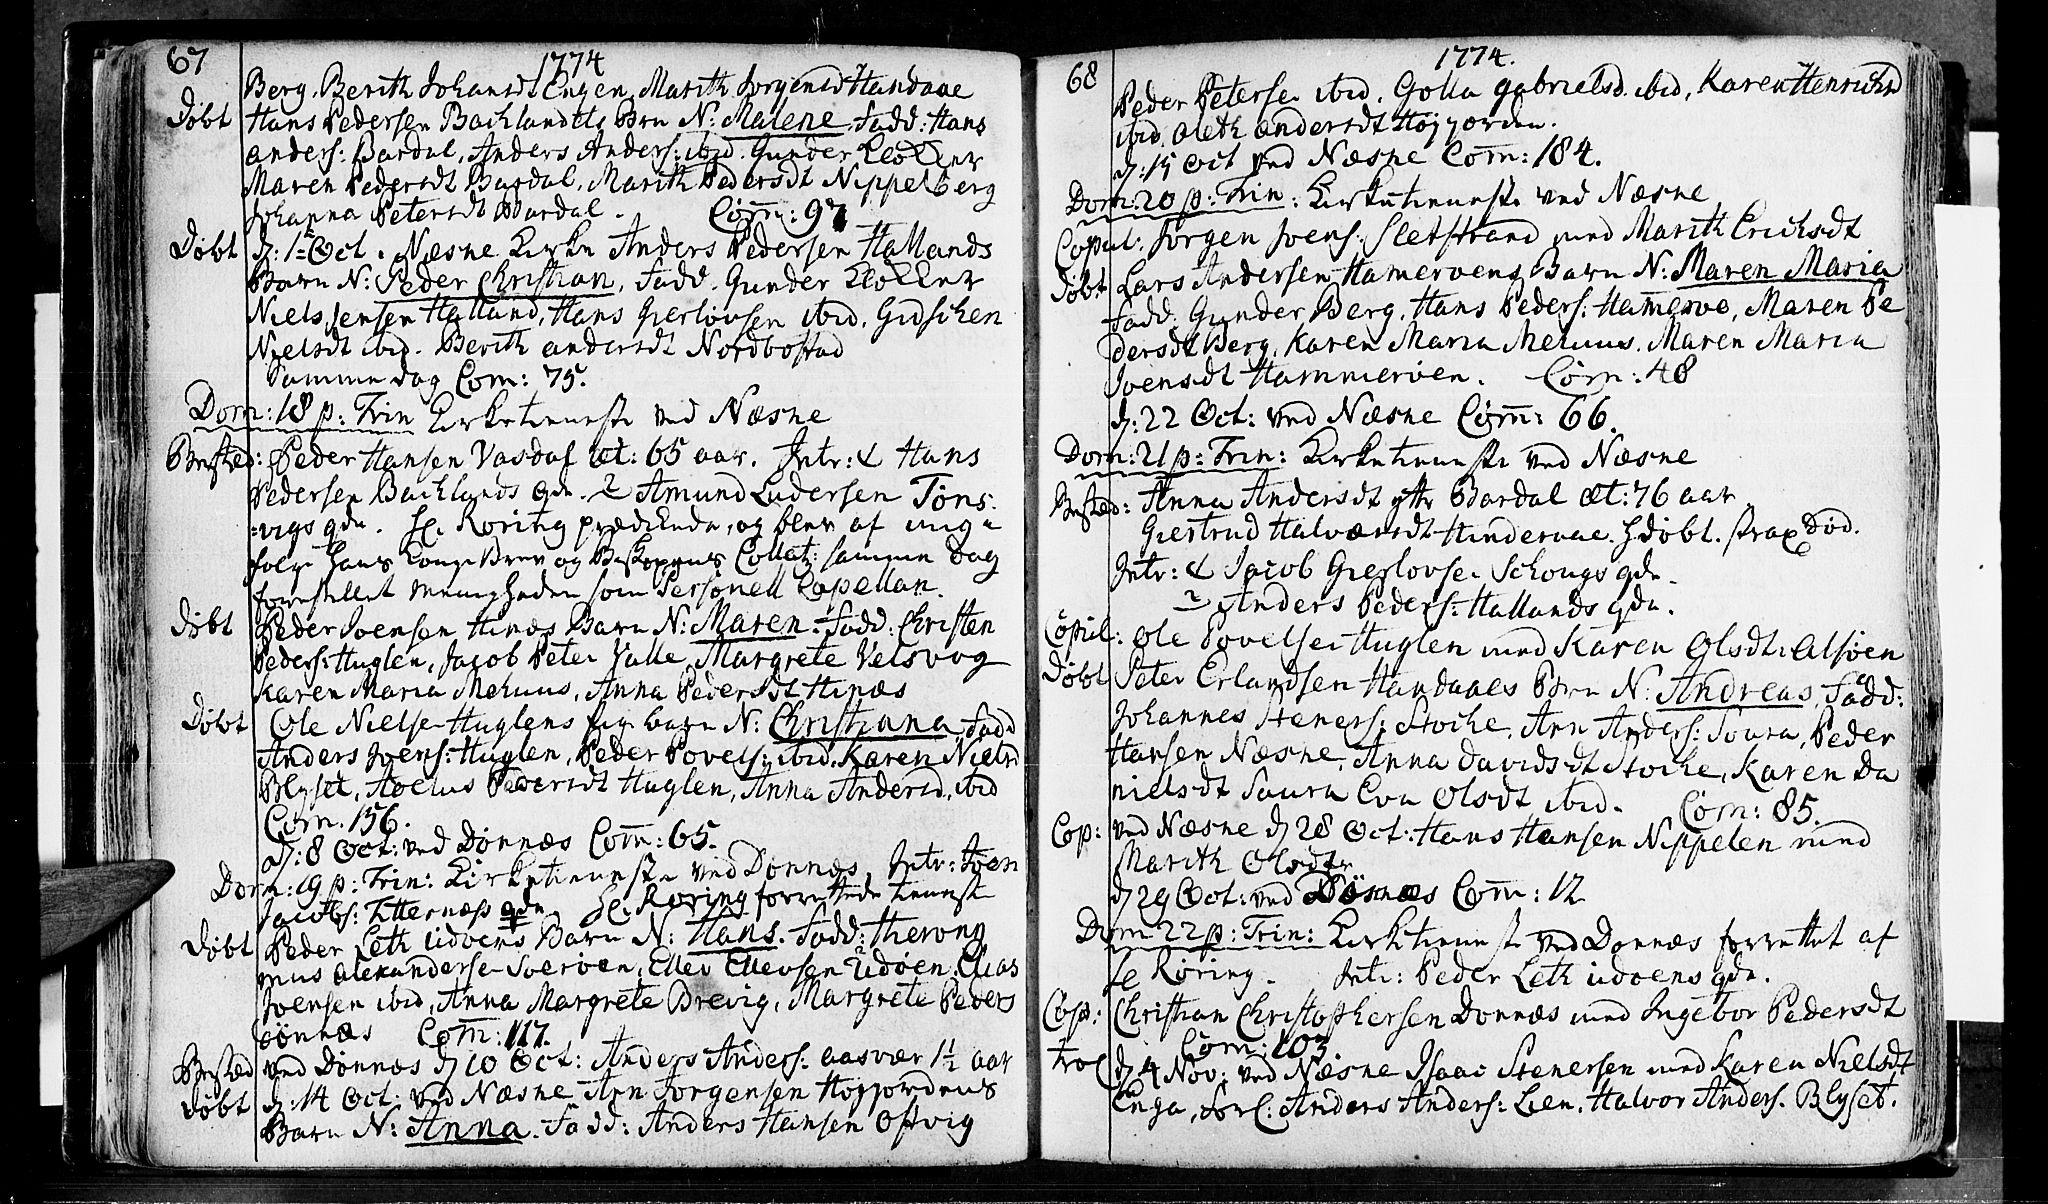 67
1774
Berg. Berith Johansdt Engen, Marith Jørgensd Handaae
Døbt Hans Pedersen Bachlandets Barn N: Malene. Fadd: Hans
Anders: Bardal, Anders Anders: ibid. Gunder Klokker
Maren Pedersdt Bardal, Marith Pedersdt Nippelberg
Johanna Petersdt Bardal. Com: 97
Døbt d: 1 Oct. Næsne Kirke Anders Pedersen Hallands
Barn N: Peder Christian. Fadd. Gunder Klokker
Niels Jensen Halland, Hans Gierløvsen ibid. Gidschen
Nielsdt ibid. Berith Andersdt Nordbostad
Samme dag Com: 75.
Dom: 18 p: Trin Kirketieneste ved Næsne
Begsted: Peder Hansen Vasdal æt: 65 aar. Intr: 1 Hans
Pedersen Bachlands qde. 2 Amund Ludersen Tøns-
=vigs qde. Hr Røring prædikede, og blev af mig i
følge Hans Konge Brev og Biskopens Collatz: samme Dag
forestillet Menigheden som Personell Capellan.
Døbt Peder Joensen Hinæs Barn N: Maren. Fadd: Christen
Peders: Huglen, Jacob Peter Valle, Margrete Velsvog
Karen Maria Mehuus, Anna Pedersdt Hinæs
Døbt Ole Nielse Huglens Barn N: Christiana Fadd
Anders Joens: Huglen, Peder Povels: ibid. Karen Nielsd
Blyset, Aoelus Pedersdt Huglen, Anna Andersd. ibid
Com. 156.
d: 8 Oct: ved Dønnæs Com: 65.
Dom: 19 p: Trin: Kirketieneste ved Dønnæs, Intr: Joen
Jacobs: Titternæss qde Hr Røring forrettede tienest
Døbt Peder Leth Udøens Barn N: Hans. Fadd: Hierony
mus Alexanderse Soerøen, Ellev Ellevsen Udøen, Elias
Joensen ibid, Anna Margrete Brevig, Margrete Peders
Dønnæs Com: 117.
Begsted ved Dønnæs d 10 Oct: Anders Anders: Aasvær 1½ aar
Døbt d: 14 Oct: ved Næsne Arn Jørgensen Højjordens
Barn N: Anna. Fadd: Anders Hansen Ostvig
68
1774.
Peder Peterse ibid. Golla Gabrielsd. ibid, Karen Henrichsd
ibid. Oleth Andersdt Højjorden.
d: 15 Oct ved Næsne Com: 184.
Dom: 20 p: Trin: Kirketieneste ved Næsne
Copul. Jørgen Joens: Sletstrand med Marith Erichsdt
Døbt Lars Andersen Hamerøens Barn N: Maren Maria
Fadd. Gunder Berg, Hans Peders: Hamerøe, Maren Pe
dersdt Berg, Karen Maria Mehuus. Maren Maria
Joensdt Hammerøen. Com: 48
d: 22 Oct: ved Næsne Com: 66.
Dom: 21 p: Trin: Kirketieneste ved Næsne
Begsted: Anna Andersdt Bardal æt: 76 aar
Giertrud Halvorsdt Hinderaae. Hdøbt. strax Død.
Intr: 1 Jacob Gierløvse Schougs qde.
2 Anders Peders: Hallands qde.
Copul: Ole Povelse Huglen med Karen Olsdt: Alsøen
Døbt Peter Erlandsen Handaaes Barn N: Andreas, Fadd:
Johannes Steners: Stoche, Arn Anders: Soura, Peder
Hansen Næsne, Anna Davidsdt Stoche, Karen Da
nielsdt Soura Eva Olsdt ibid. Com: 85.
Cop: ved Næsne d 28 Oct: Hans Hansen Nippelen med
Marith Olsdtr
d 29 Oct: ved Dønnæs Com: 12
Dom 22 p: Trin: Kirketieneste ved Dønnæs forrettet af
Hr Røring. Intr: Peder Leth Udøens qde.
Cop: Christian Christophersen Dønnæs med Ingebor Pedersdt
Com: 103
Trol d 4 Nov: ved Næsne Isaac Stenersen med Karen Nielsdt
Enga, Forl: Anders Anders: Leen. Halvor Anders. Blyset.